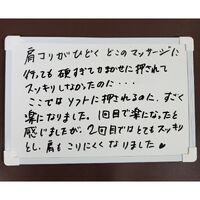 肩コリがひどく どこのマッサージに
行っても 硬すぎて力まかせに押されて
スッキリしなかったのに・・・
ここではソフトに押されるのに、すごく
楽になりました。1回目で楽になったと
感じましたが、2回目ではとてもスッキリ
とし、肩もこりにくくなりました